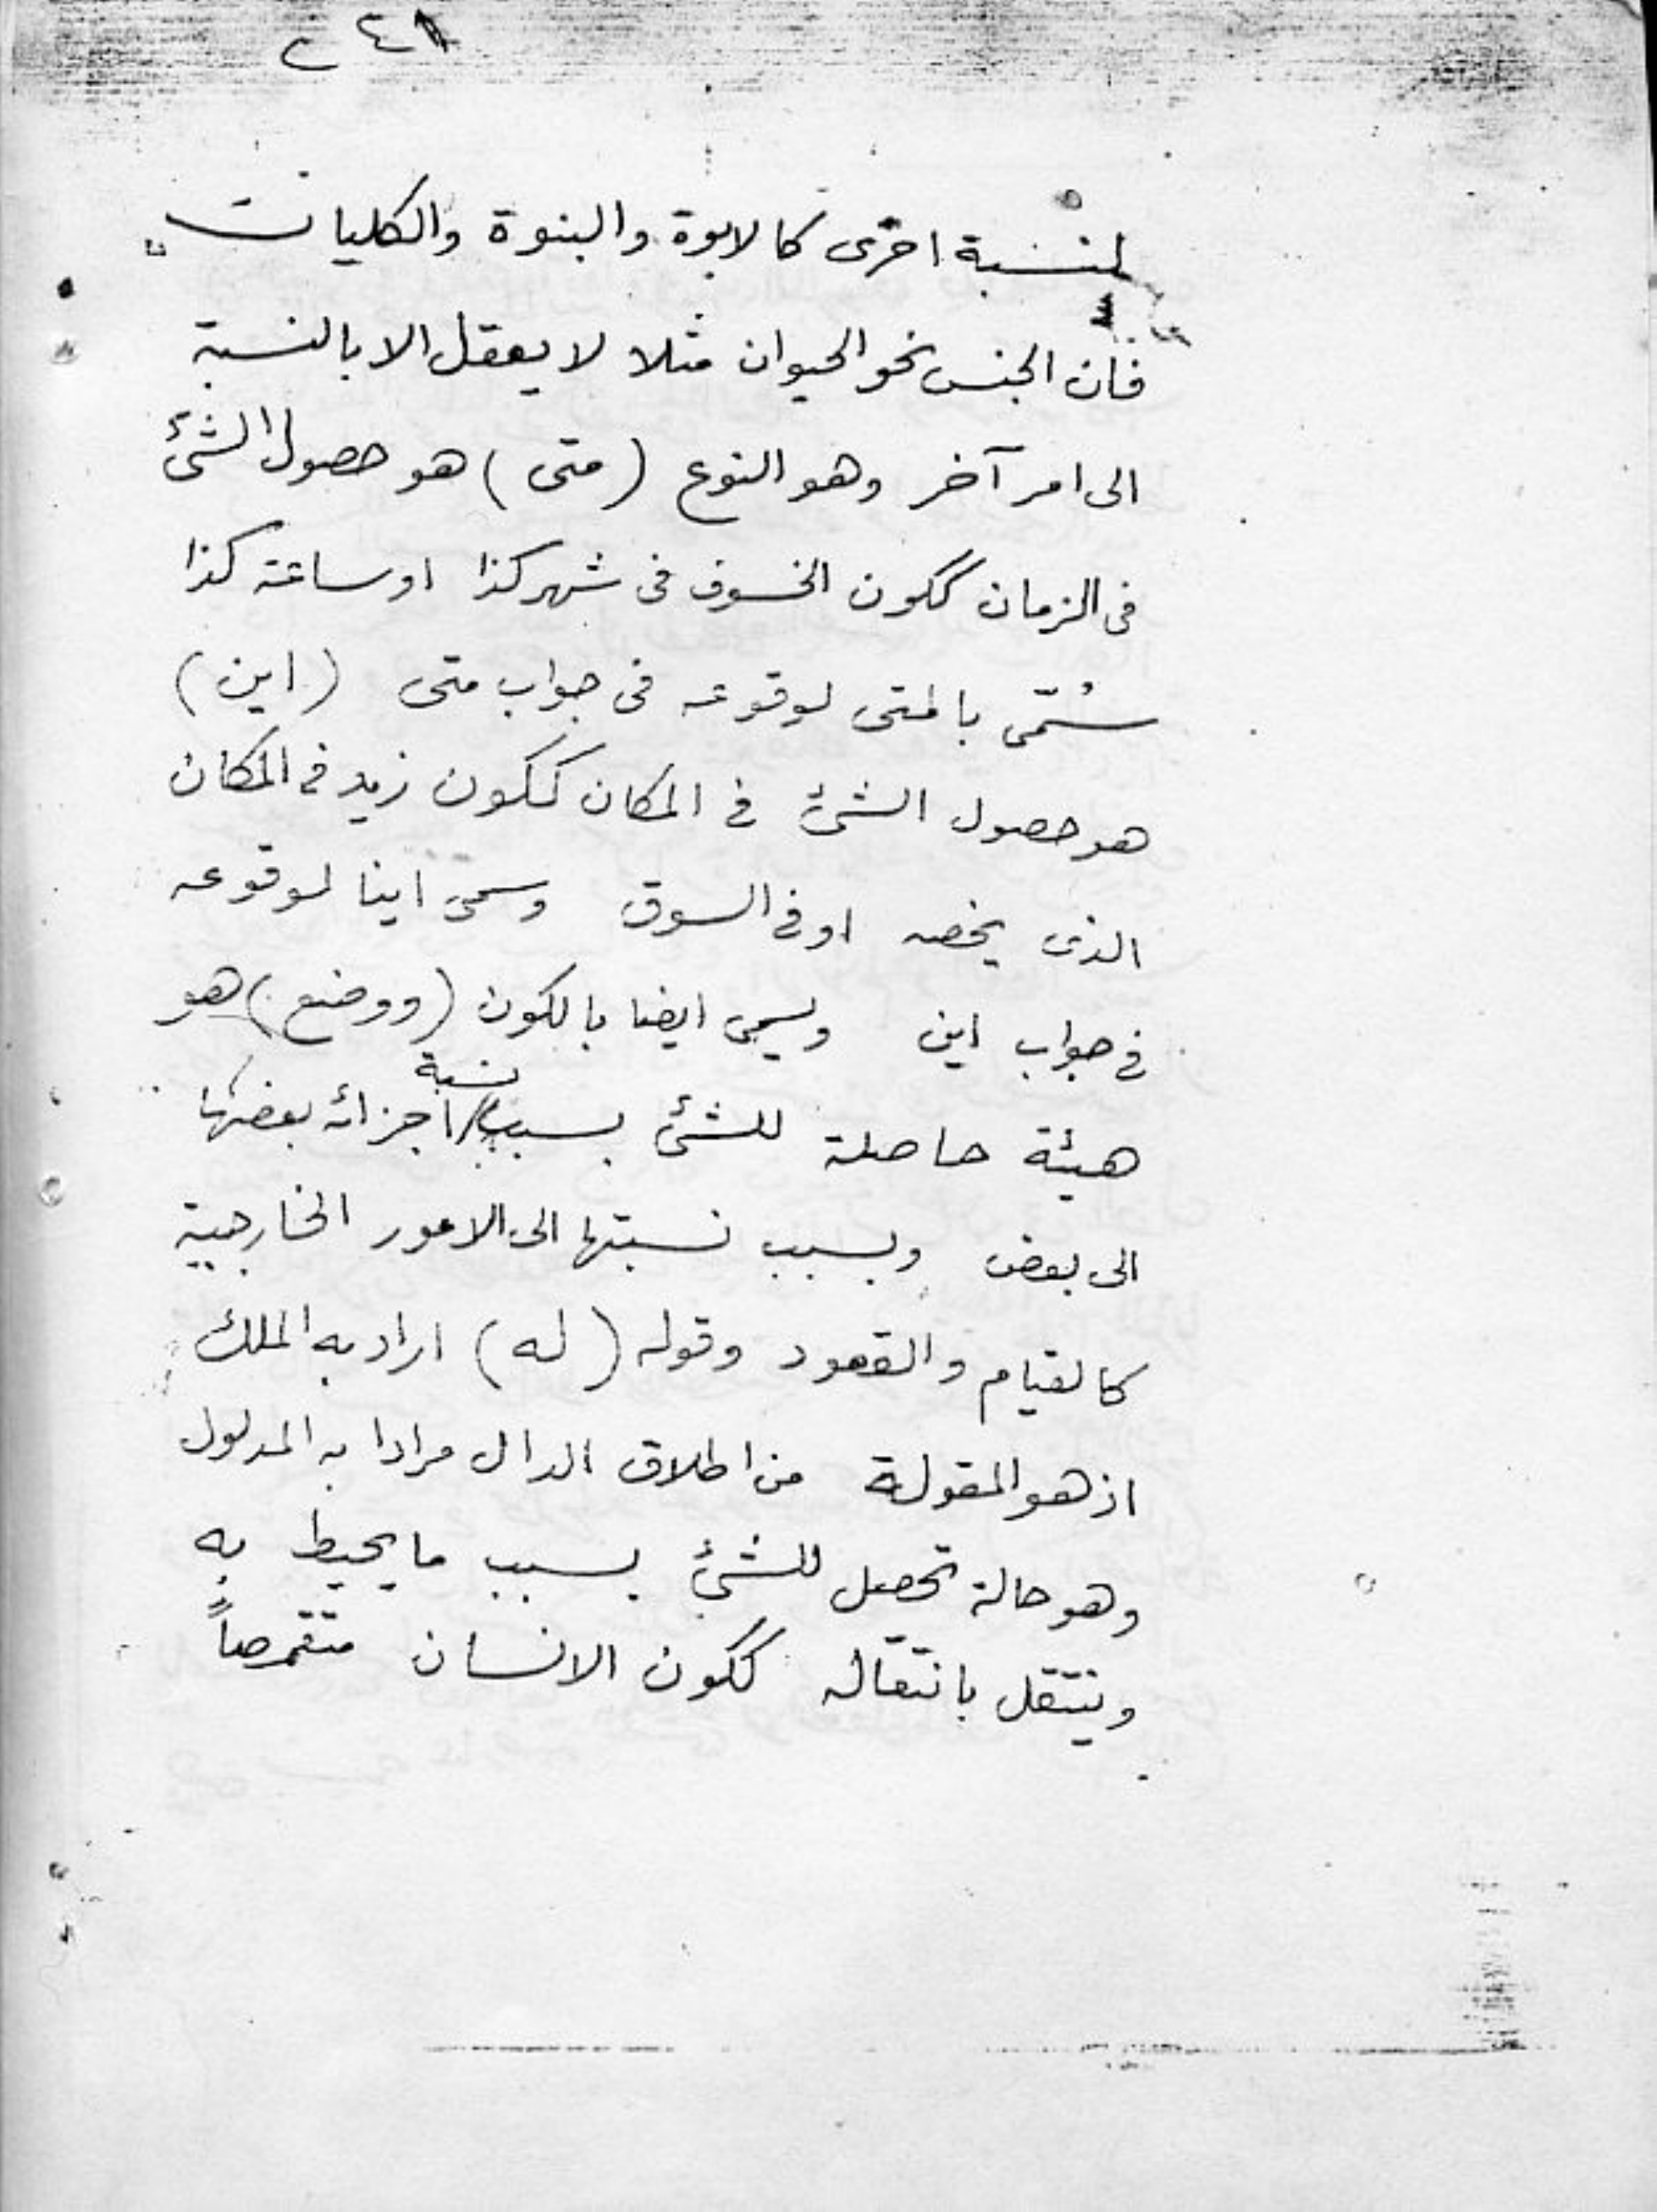 لنسبة اخرى كالابوة والبنوة والكليات
فان الجنس نحو الحيوان مثلا لا يعقل الا بالنسبة
الى امر آخر وهو النوع (متى) هو حصول الشئ
فى الزمان ككون الخسوف فى شهر كذا او ساعة كذا
سُمّى بالمتى لوقوعه فى جواب متى (اين)
هو حصول الشئ فى المكان ككون زيد فى المكان
الذى يخصه او فى السوق وسمى اينا لوقوعه
فى جواب اين ويسمى ايضا بالكون (ووضع) هو
هيئة حاصلة للشئ بسبب نسبة اجزائه بعضها
الى بعض وبسبب نسبتها الى الامور الخارجية
كالقيام والقعود وقوله (له) اراد به الملك
اذ هو المقولة من اطلاق الدال مرادا به المدلول
وهو حالة تحصل للشئ بسبب ما يحيط به
وينتقل بانتقاله ككون الانسان متقمصاً